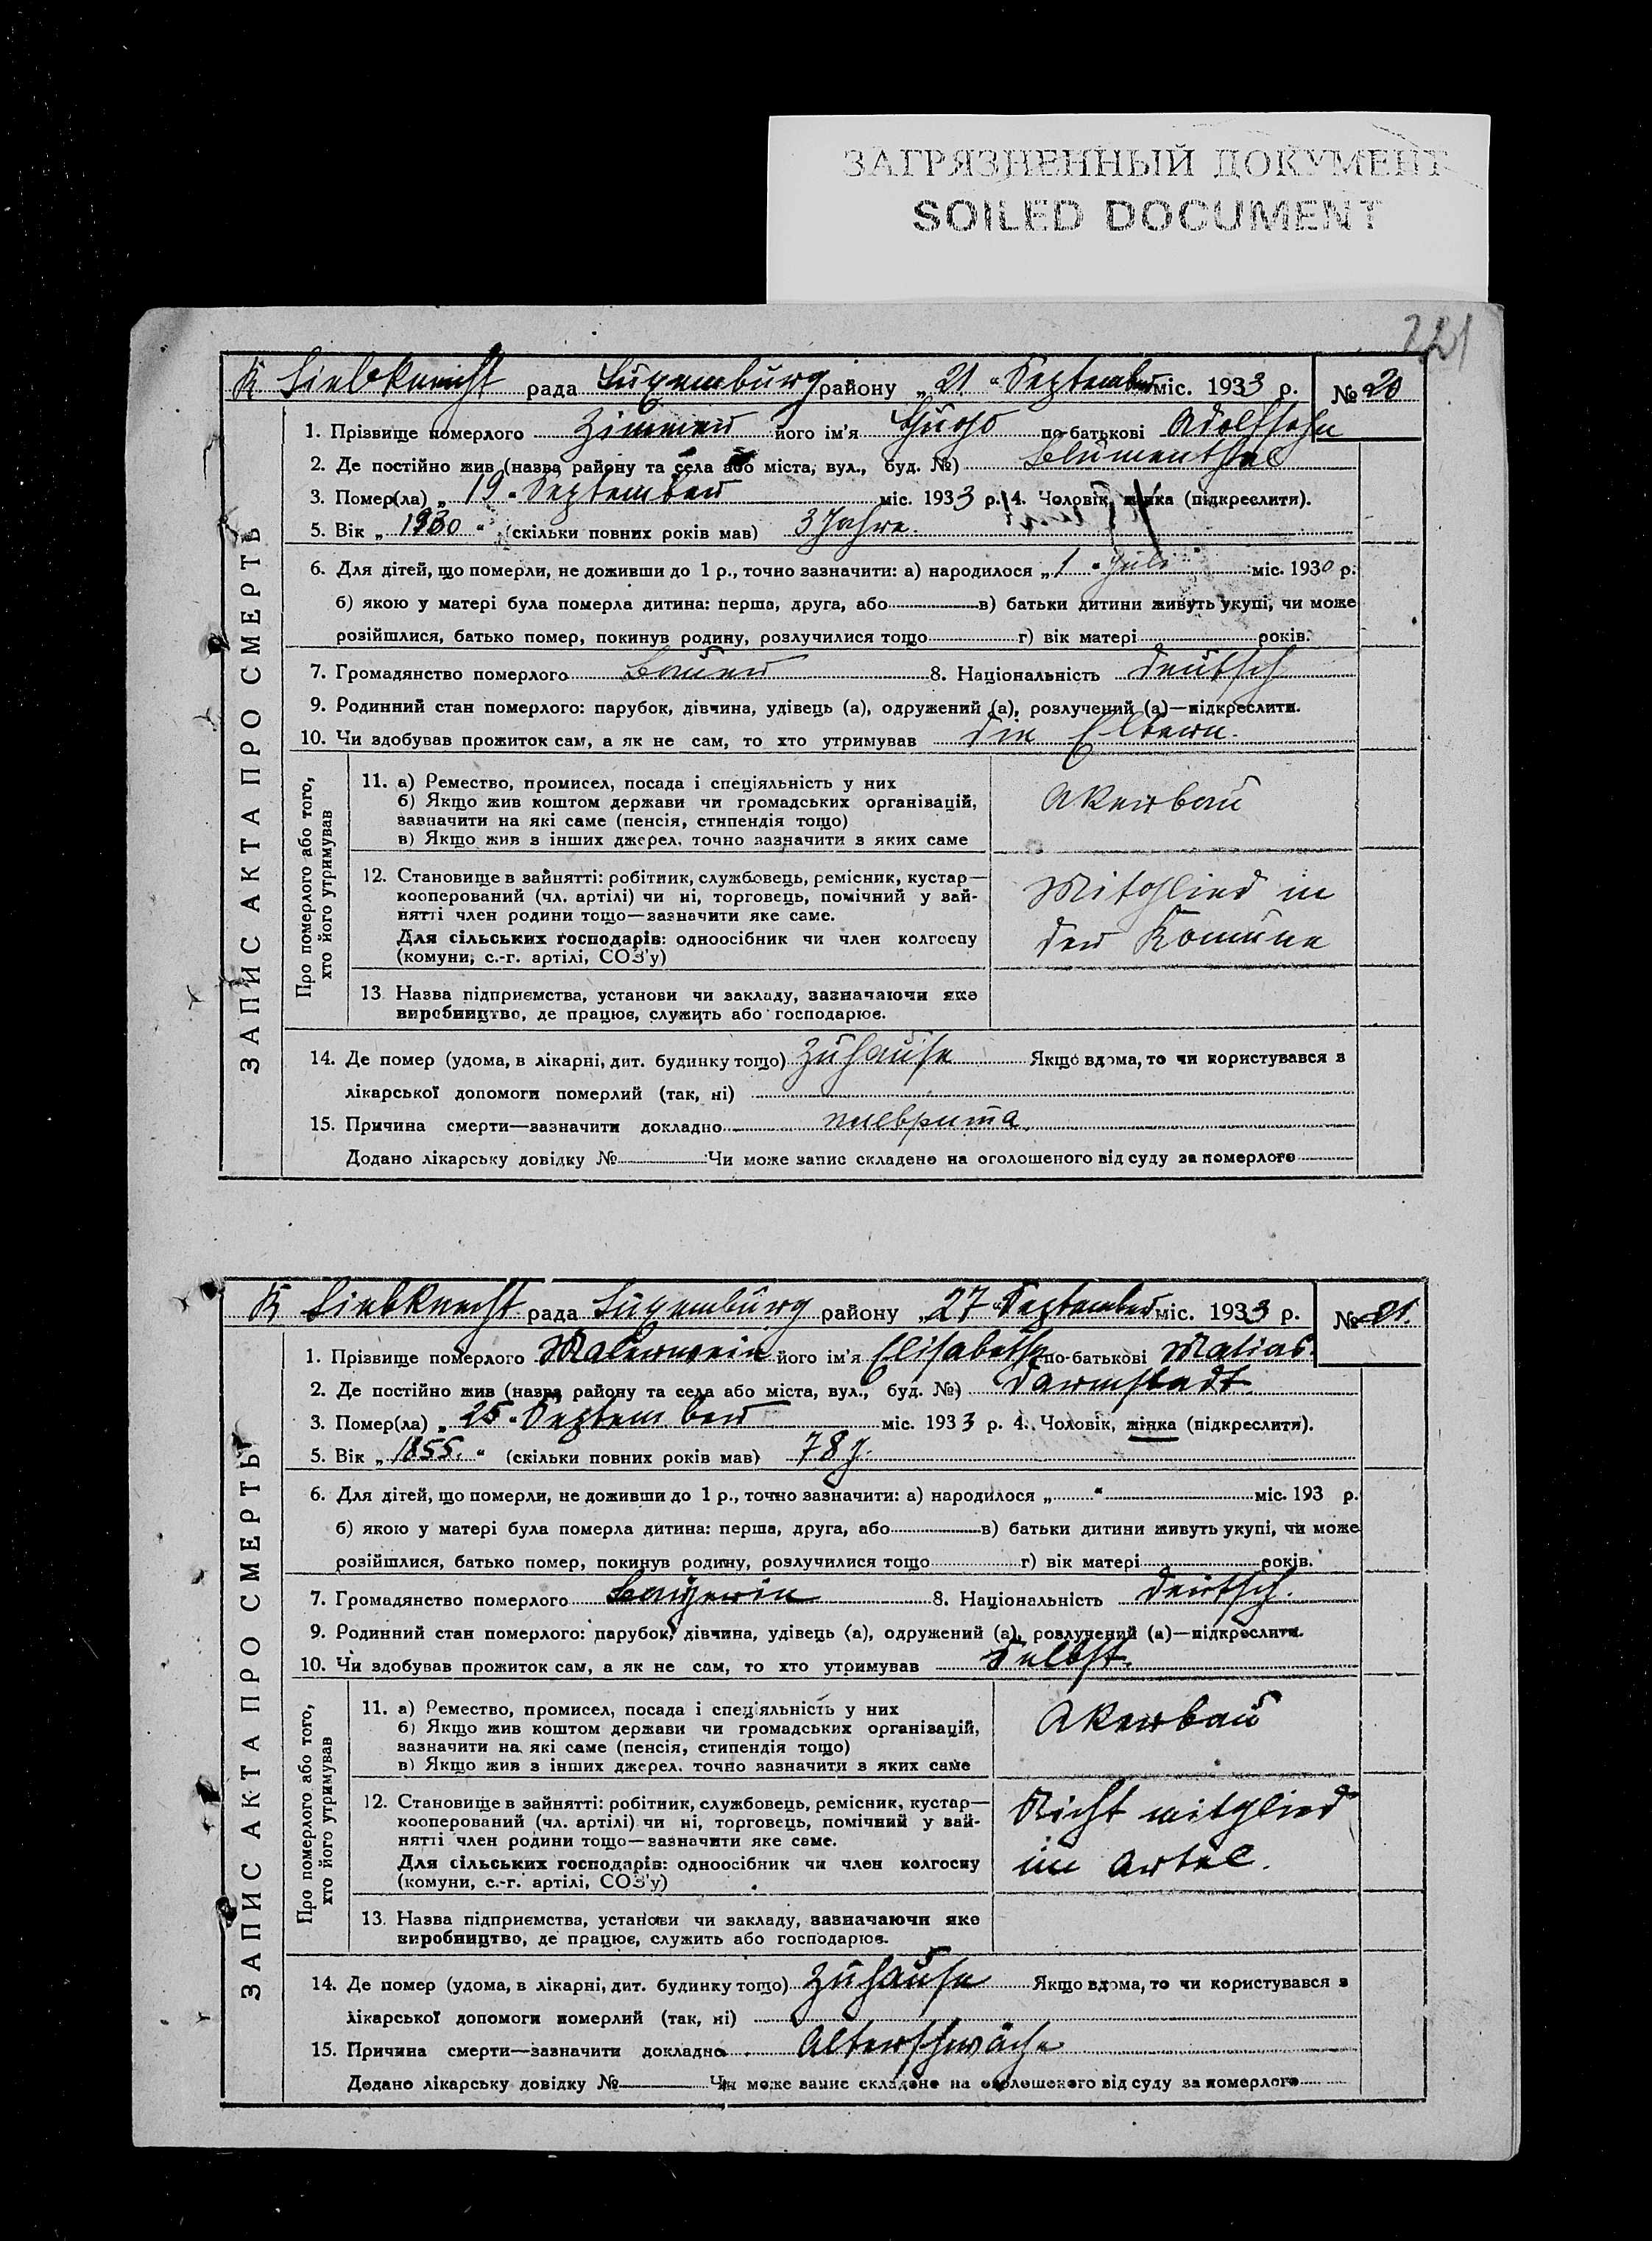 ЗАГРЯЗНЕННЫЙ ДОКУМЕНТ
SOILED DOCUMENT
221
K Liebknecht рада Luxemburg району „21“ September міс. 1933 р. № 20
ЗАПИС АКТА ПРО СМЕРТЬ
1. Прізвище померлого Zimmer його ім'я Hugo по-батькові Adolfsohn
2. Де постійно жив (назва району та села або міста, вул., буд. №) Blumenthal
3. Помер(ла) „19“ September міс. 1933 р. 4. Чоловік, жінка (підкреслити).
5. Вік „1930“ (скільки повних років мав) 3 Jahre.
6. Для дітей, що померли, не доживши до 1 р., точно зазначити: а) народилося „1“ Juli міс. 1930 р.
б) якою у матері була померла дитина: перша, друга, або в) батьки дитини живуть укупі, чи може
розійшлися, батько помер, покинув родину, розлучилися тощо г) вік матері років.
7. Громадянство померлого Bauer 8. Національність deutsch
9. Родинний стан померлого: парубок, дівчина, удівець (а), одружений (а), розлучений (а)—підкреслити.
10. Чи здобував прожиток сам, а як не сам, то хто утримував die Eltern.
Про померлого або того, хто його утримував
11. а) Ремество, промисел, посада і спеціяльність у них
б) Якщо жив коштом держави чи громадських організацій,
зазначити на які саме (пенсія, стипендія тощо)
в) Якщо жив з інших джерел, точно зазначити з яких саме
Akerbau
12. Становище в зайнятті: робітник, службовець, ремісник, кустар—
кооперований (чл. артілі) чи ні, торговець, помічний у зай-
нятті член родини тощо—зазначити яке саме.
Для сільських господарів: одноосібник чи член колгоспу
(комуни, с.-г. артілі, СОЗ'у)
Mitglied in
der Komune
13. Назва підприємства, установи чи закладу, зазначаючи яке
виробництво, де працює, служить або господарює.
14. Де помер (удома, в лікарні, дит. будинку тощо) Zuhause Якщо вдома, то чи користувався з
лікарської допомоги померлий (так, ні)
15. Причина смерти—зазначити докладно плеврита
Додано лікарську довідку № Чи може запис складено на оголошеного від суду за померлого
K Liebknecht рада Luxemburg району „27“ September міс. 1933 р. № 21.
ЗАПИС АКТА ПРО СМЕРТЬ
1. Прізвище померлого Malerwein його ім'я Elisabetha по-батькові Matias.
2. Де постійно жив (назва району та села або міста, вул., буд. №) Darmstadt
3. Помер(ла) „25“ September міс. 1933 р. 4. Чоловік, жінка (підкреслити).
5. Вік „1855.“ (скільки повних років мав) 78 J.
6. Для дітей, що померли, не доживши до 1 р., точно зазначити: а) народилося „ “ міс. 193 р.
б) якою у матері була померла дитина: перша, друга, або в) батьки дитини живуть укупі, чи може
розійшлися, батько помер, покинув родину, розлучилися тощо г) вік матері років.
7. Громадянство померлого Bauerin 8. Національність deutsch.
9. Родинний стан померлого: парубок, дівчина, удівець (а), одружений (а), розлучений (а)—підкреслити.
10. Чи здобував прожиток сам, а як не сам, то хто утримував Selbst.
Про померлого або того, хто його утримував
11. а) Ремество, промисел, посада і спеціяльність у них
б) Якщо жив коштом держави чи громадських організацій,
зазначити на які саме (пенсія, стипендія тощо)
в) Якщо жив з інших джерел, точно зазначити з яких саме
Akerbau
12. Становище в зайнятті: робітник, службовець, ремісник, кустар—
кооперований (чл. артілі) чи ні, торговець, помічний у зай-
нятті член родини тощо—зазначити яке саме.
Для сільських господарів: одноосібник чи член колгоспу
(комуни, с.-г. артілі, СОЗ'у)
Nicht mitglied
im Artel.
13. Назва підприємства, установи чи закладу, зазначаючи яке
виробництво, де працює, служить або господарює.
14. Де помер (удома, в лікарні, дит. будинку тощо) Zuhause Якщо вдома, то чи користувався з
лікарської допомоги померлий (так, ні)
15. Причина смерти—зазначити докладно Alterschwäche
Додано лікарську довідку № Чи може запис складено на оголошеного від суду за померлого